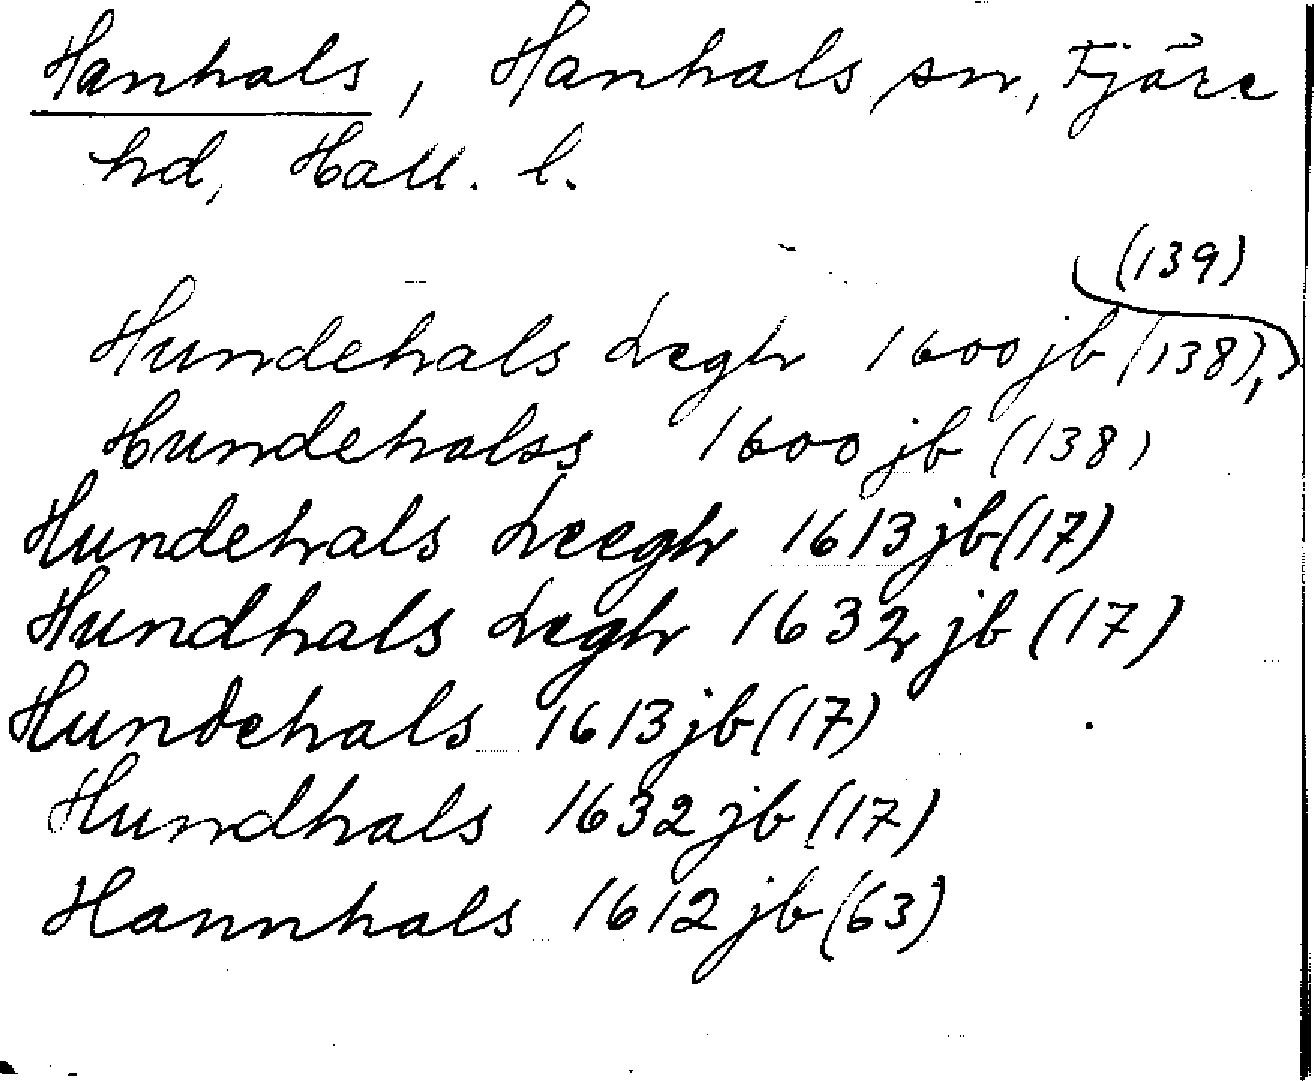 Hanhals, Hanhals sn, Fjäre
hd, Hall. l.
(139)
Hundehals Legh 1600 jb (138),
Hundehalss 1600 jb (138)
Hundehals Leegh 1613 jb (17)
Hundhals Legh 1632 jb (17)
Hundehals 1613 jb (17)
Hundhals 1632 jb (17)
Hannhals 1612 jb (63)